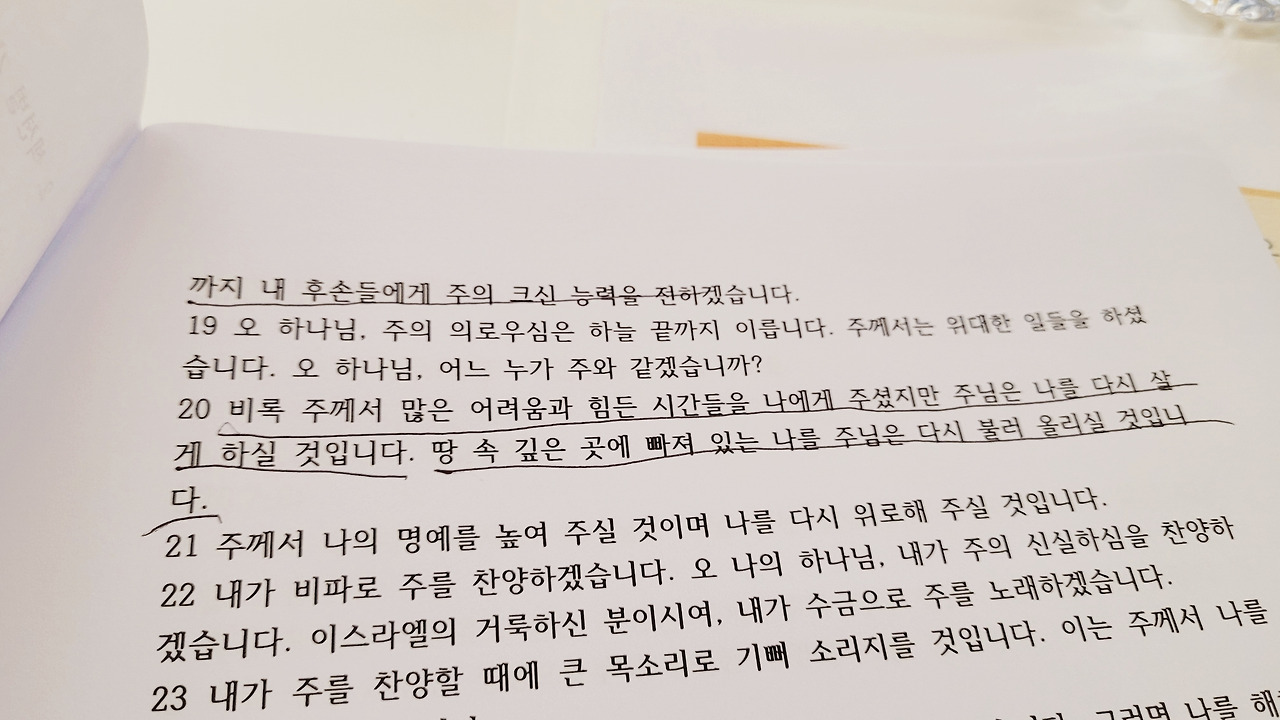 까지 내 후손들에게 주의 크신 능력을 전하겠습니다.
19 오 하나님, 주의 의로우심은 하늘 끝까지 이릅니다. 주께서는 위대한 일들을 하셨
습니다. 오 하나님, 어느 누가 주와 같겠습니까?
20 비록 주께서 많은 어려움과 힘든 시간들을 나에게 주셨지만 주님은 나를 다시 살
게 하실 것입니다. 땅 속 깊은 곳에 빠져 있는 나를 주님은 다시 불러 올리실 것입니
다.
21 주께서 나의 명예를 높여 주실 것이며 나를 다시 위로해 주실 것입니다.
22 내가 비파로 주를 찬양하겠습니다. 오 나의 하나님, 내가 주의 신실하심을 찬양하
겠습니다. 이스라엘의 거룩하신 분이시여, 내가 수금으로 주를 노래하겠습니다.
23 내가 주를 찬양할 때에 큰 목소리로 기뻐 소리지를 것입니다. 이는 주께서 나를
그러면 나를